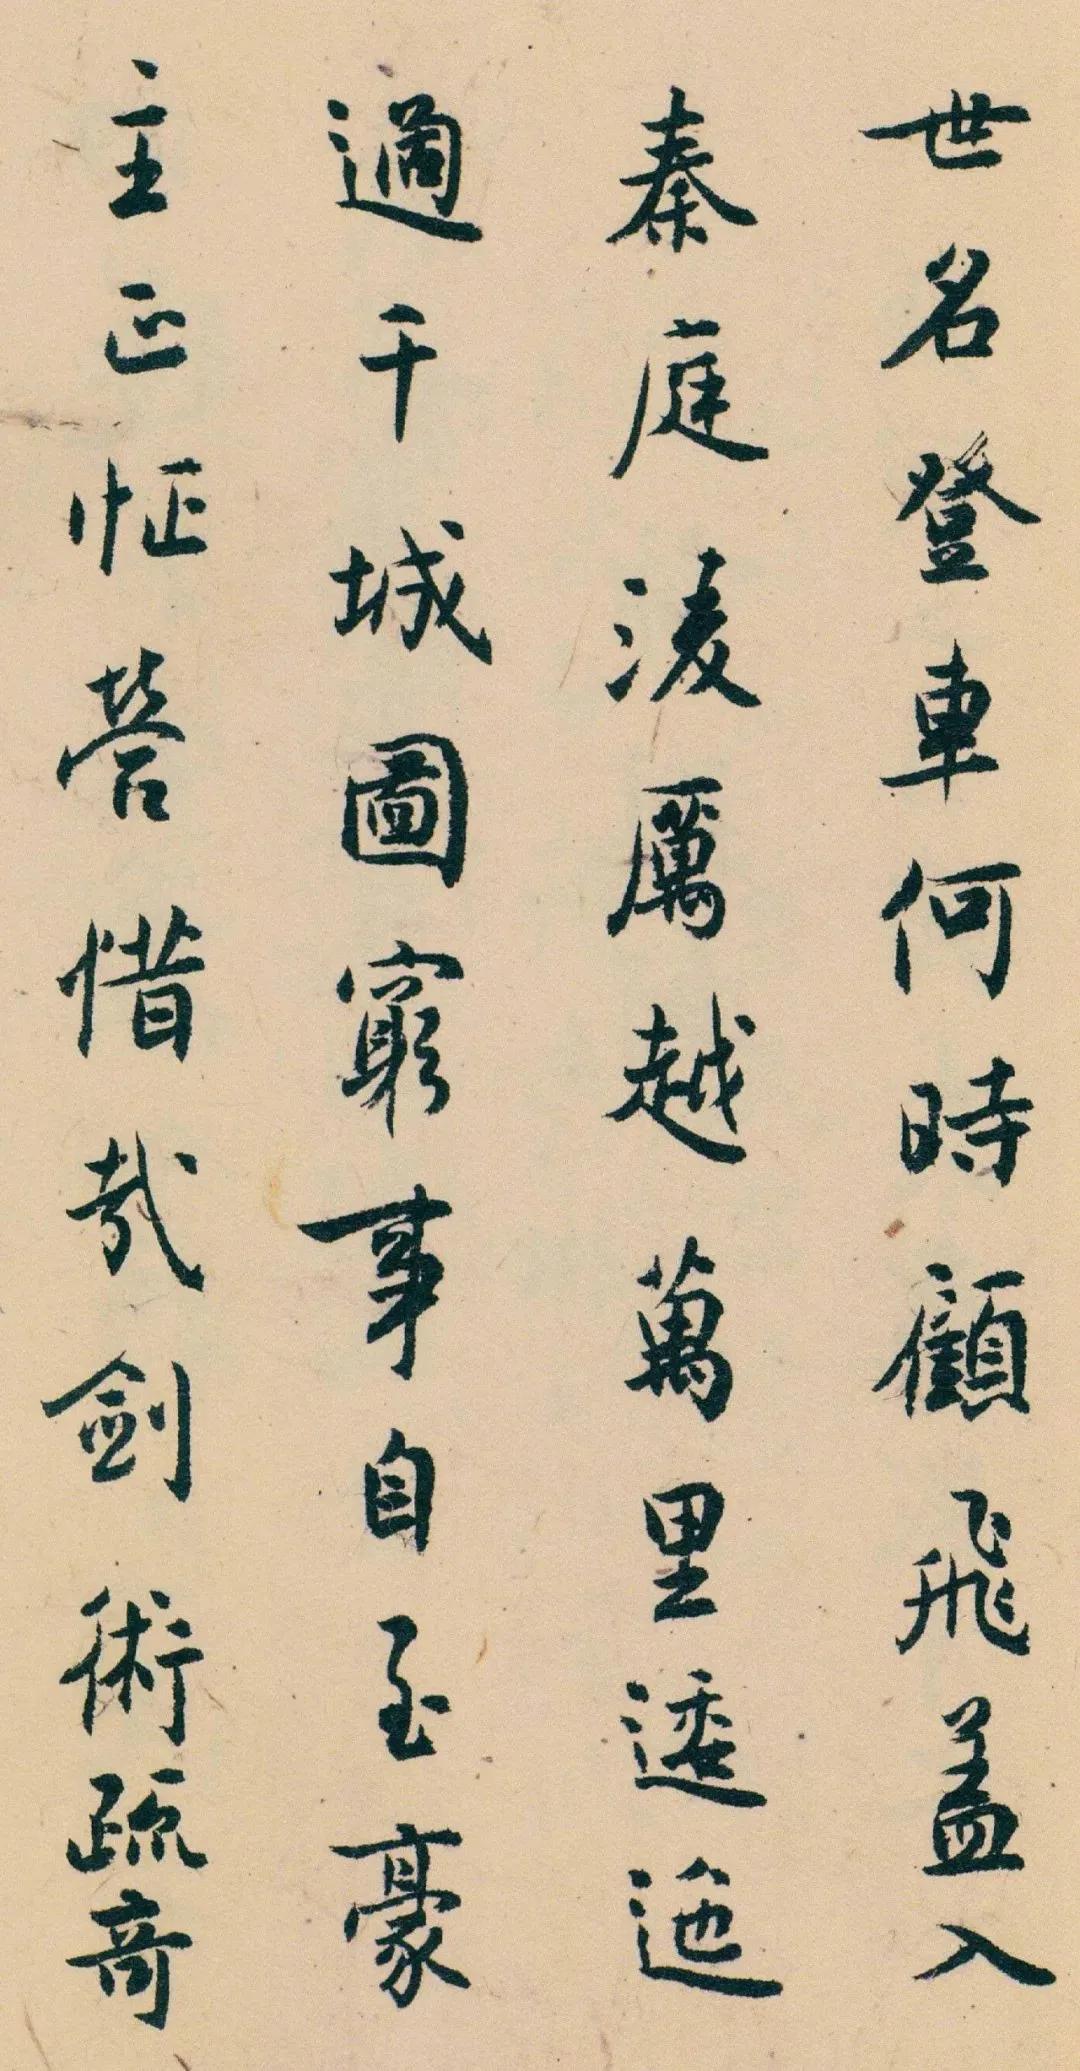 世名登車何時顧飛盖入
秦庭淩厲越萬里逶迤
過千城圖窮事自至豪
主正怔營惜哉劍術疏奇